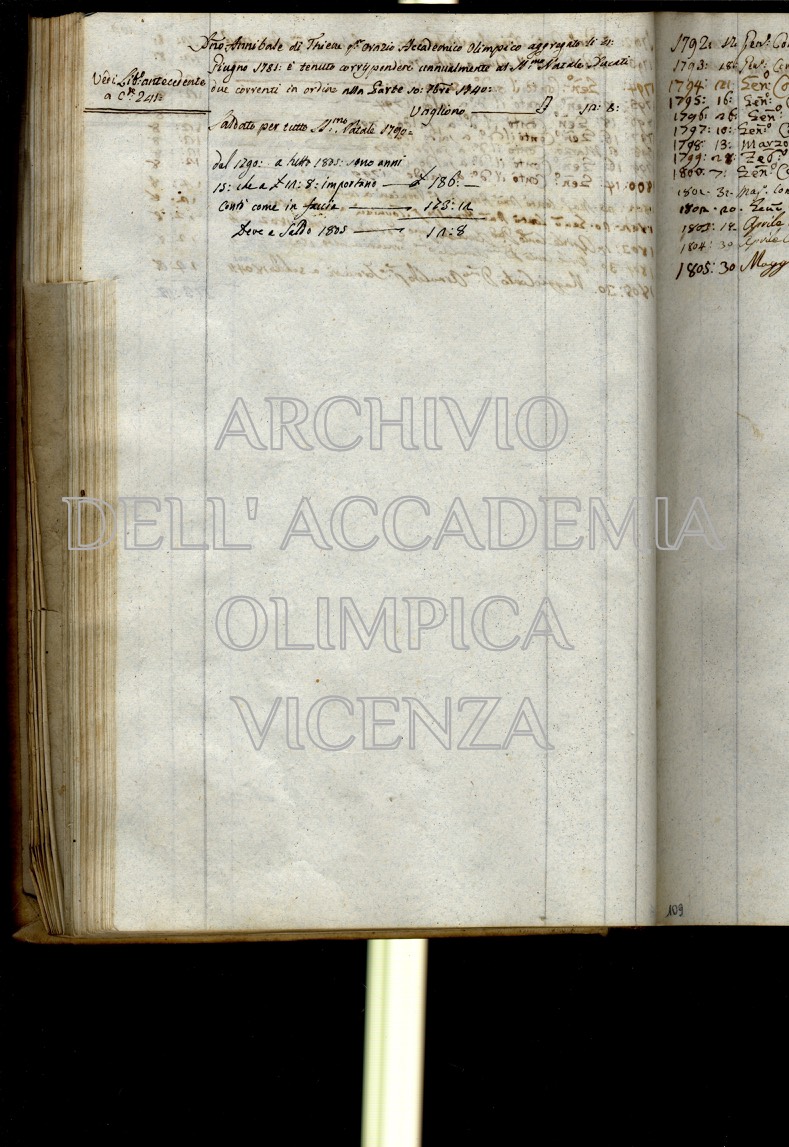 Vedi Lib.º antecedente
a C.te 241:
Dño: Annibale di Thiene q.m Orazio Accademico Olimpico aggregato li 21:
Giugno 1781: è tenuto corrisponder annualmente al S.mo Natale Ducati
due correnti in ordine alla Parte 10: 7bre 1740:
Vagliono 12: 8:
Saldato per tutto S.mo Natale 1790:
dal 1790: a tutto 1805: sono anni
15: che a £ 12: 8: importano £ 186:
Conti come in faccia 173: 12
Deve a Saldo 1805 12: 8
1792: 12 Gen.º
1793: 18: Gen.º
1794: 21: Gen.º
1795: 16: Gen.º
1796: 26: Gen.º
1797: 10: Gen.º
1798: 13: Marzo
1799: 28: Feb.º
1800: 7: Gen.º
1801: 31: Mag.º
1802: 20: Gen.º
1803: 12: Aprile
1804: 30 Aprile
1805: 30 Magg
109
ARCHIVIO
DELL' ACCADEMIA
OLIMPICA
VICENZA